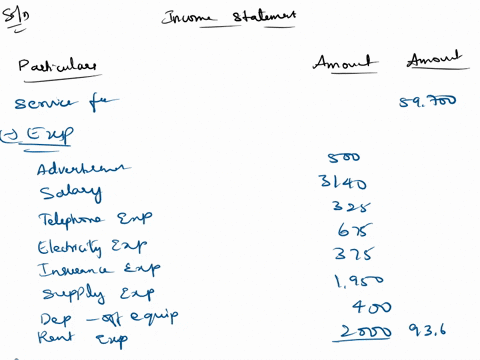 Sol
Income Statement
Particulars Amount Amount
Service fee 59,700
(-) Exp
Advertisement 500
Salary 3140
Telephone Exp 325
Electricity Exp 675
Insurance Exp 375
Supply Exp 1,950
Dep - off equip 400
Rent Exp 2000 93,6